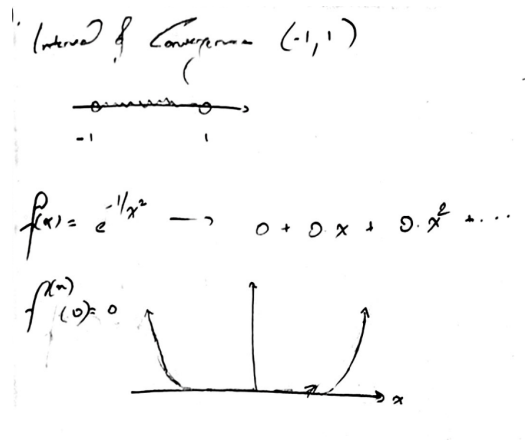 Interval of Convergence (-1, 1)
-1 1
f(x) = e^{-1/x^2} → 0 + 0·x + 0·x^2 + ...
f^{(n)}(0) = 0
x